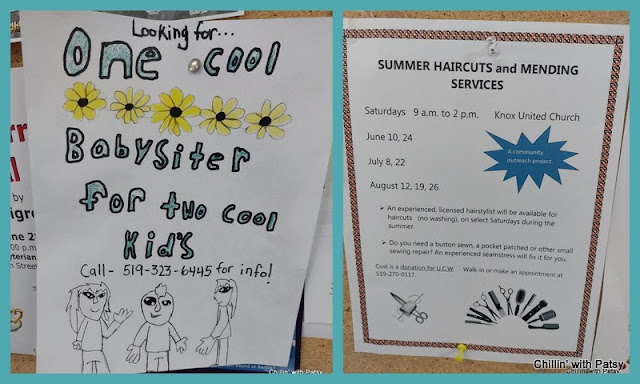 Looking for...
One cool
Babysiter
for two cool
Kid's
Call- 519-323-6445 for info!
Chillin' with Patsy
SUMMER HAIRCUTS and MENDING
SERVICES
Saturdays 9 a.m. to 2 p.m. Knox United Church
June 10, 24
July 8, 22
August 12, 19, 26
A community
outreach project.
➢ An experienced, licensed hairstylist will be available for
haircuts (no washing), on select Saturdays during the
summer.
➢ Do you need a button sewn, a pocket patched or other small
sewing repair? An experienced seamstress will fix it for you.
Cost is a donation for U.C.W. Walk in or make an appointment at
519-270-0117.
Chillin' with Patsy